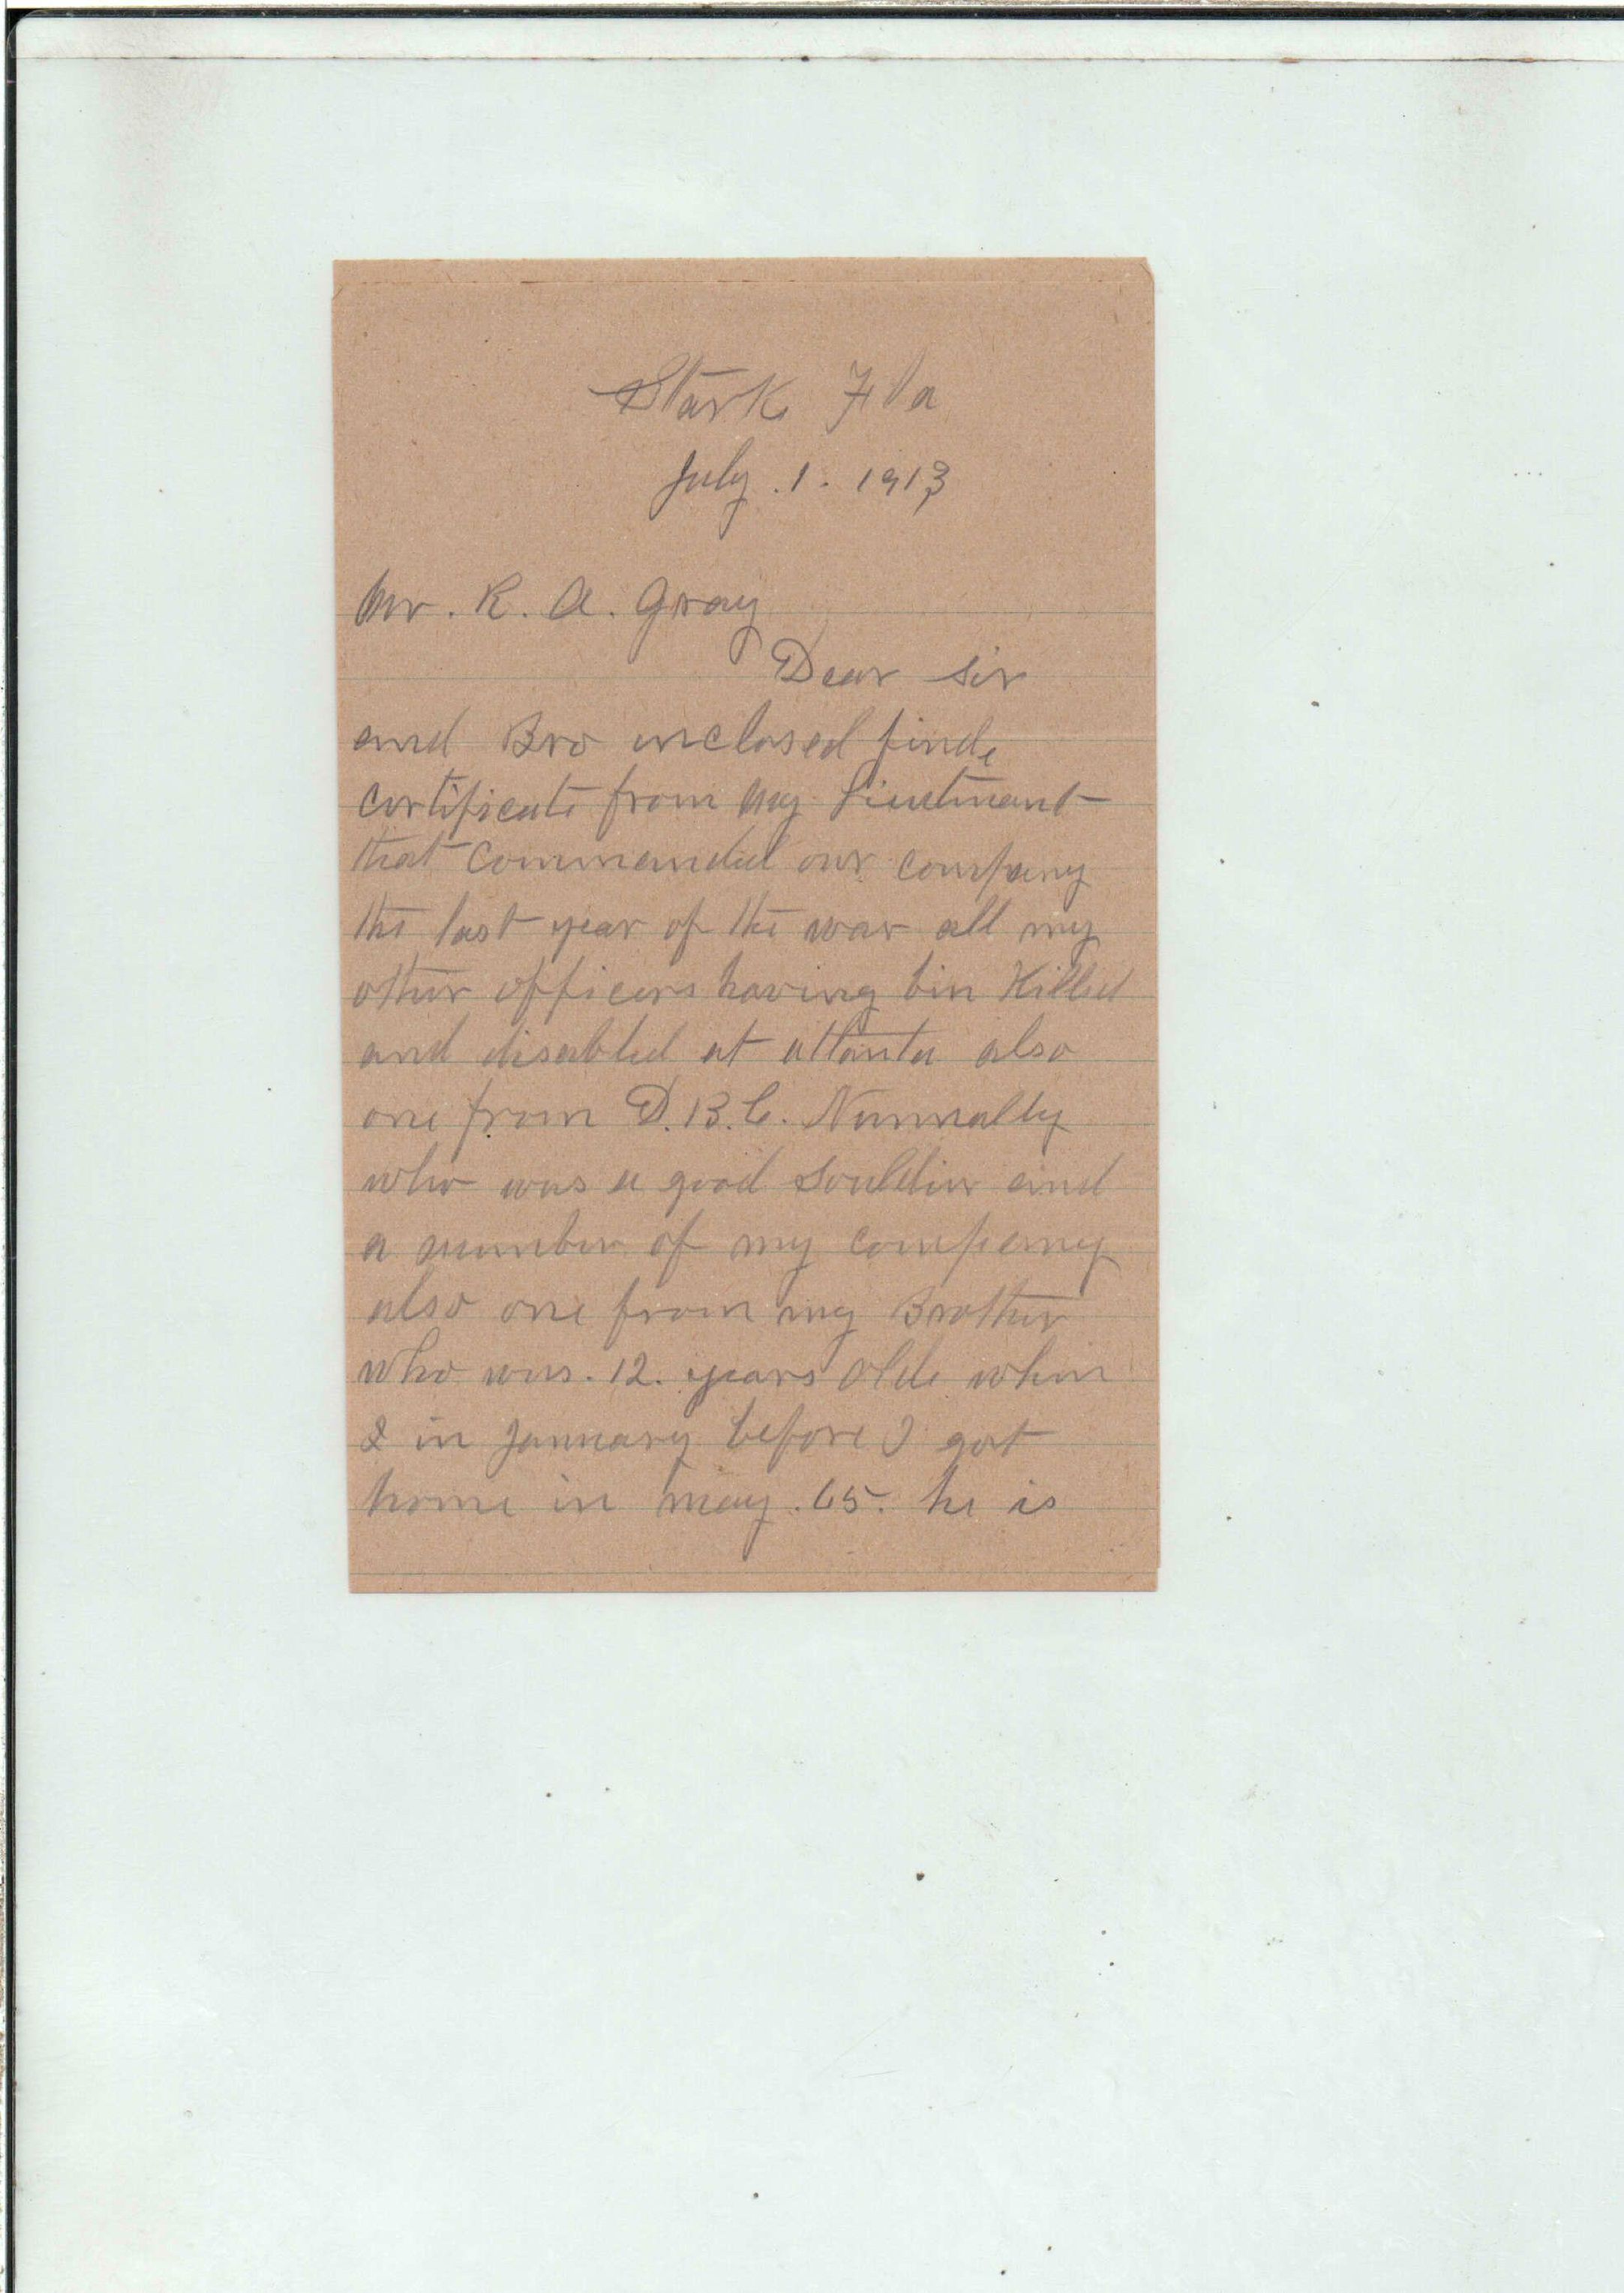 Stark Fla
July . 1 . 1913
Mr . R . A . Gray
Dear sir
and Bro inclosed finde
certificate from my Lieutenant
that commanded our company
the last year of the war all my
other officers having bin Killed
and disabled at atlanta also
one from D. B. C. Nunnally
who was a good souldier and
a member of my company
also one from my Brother
who was . 12 . years olde when
in January before I got
home in may . 65 . he is